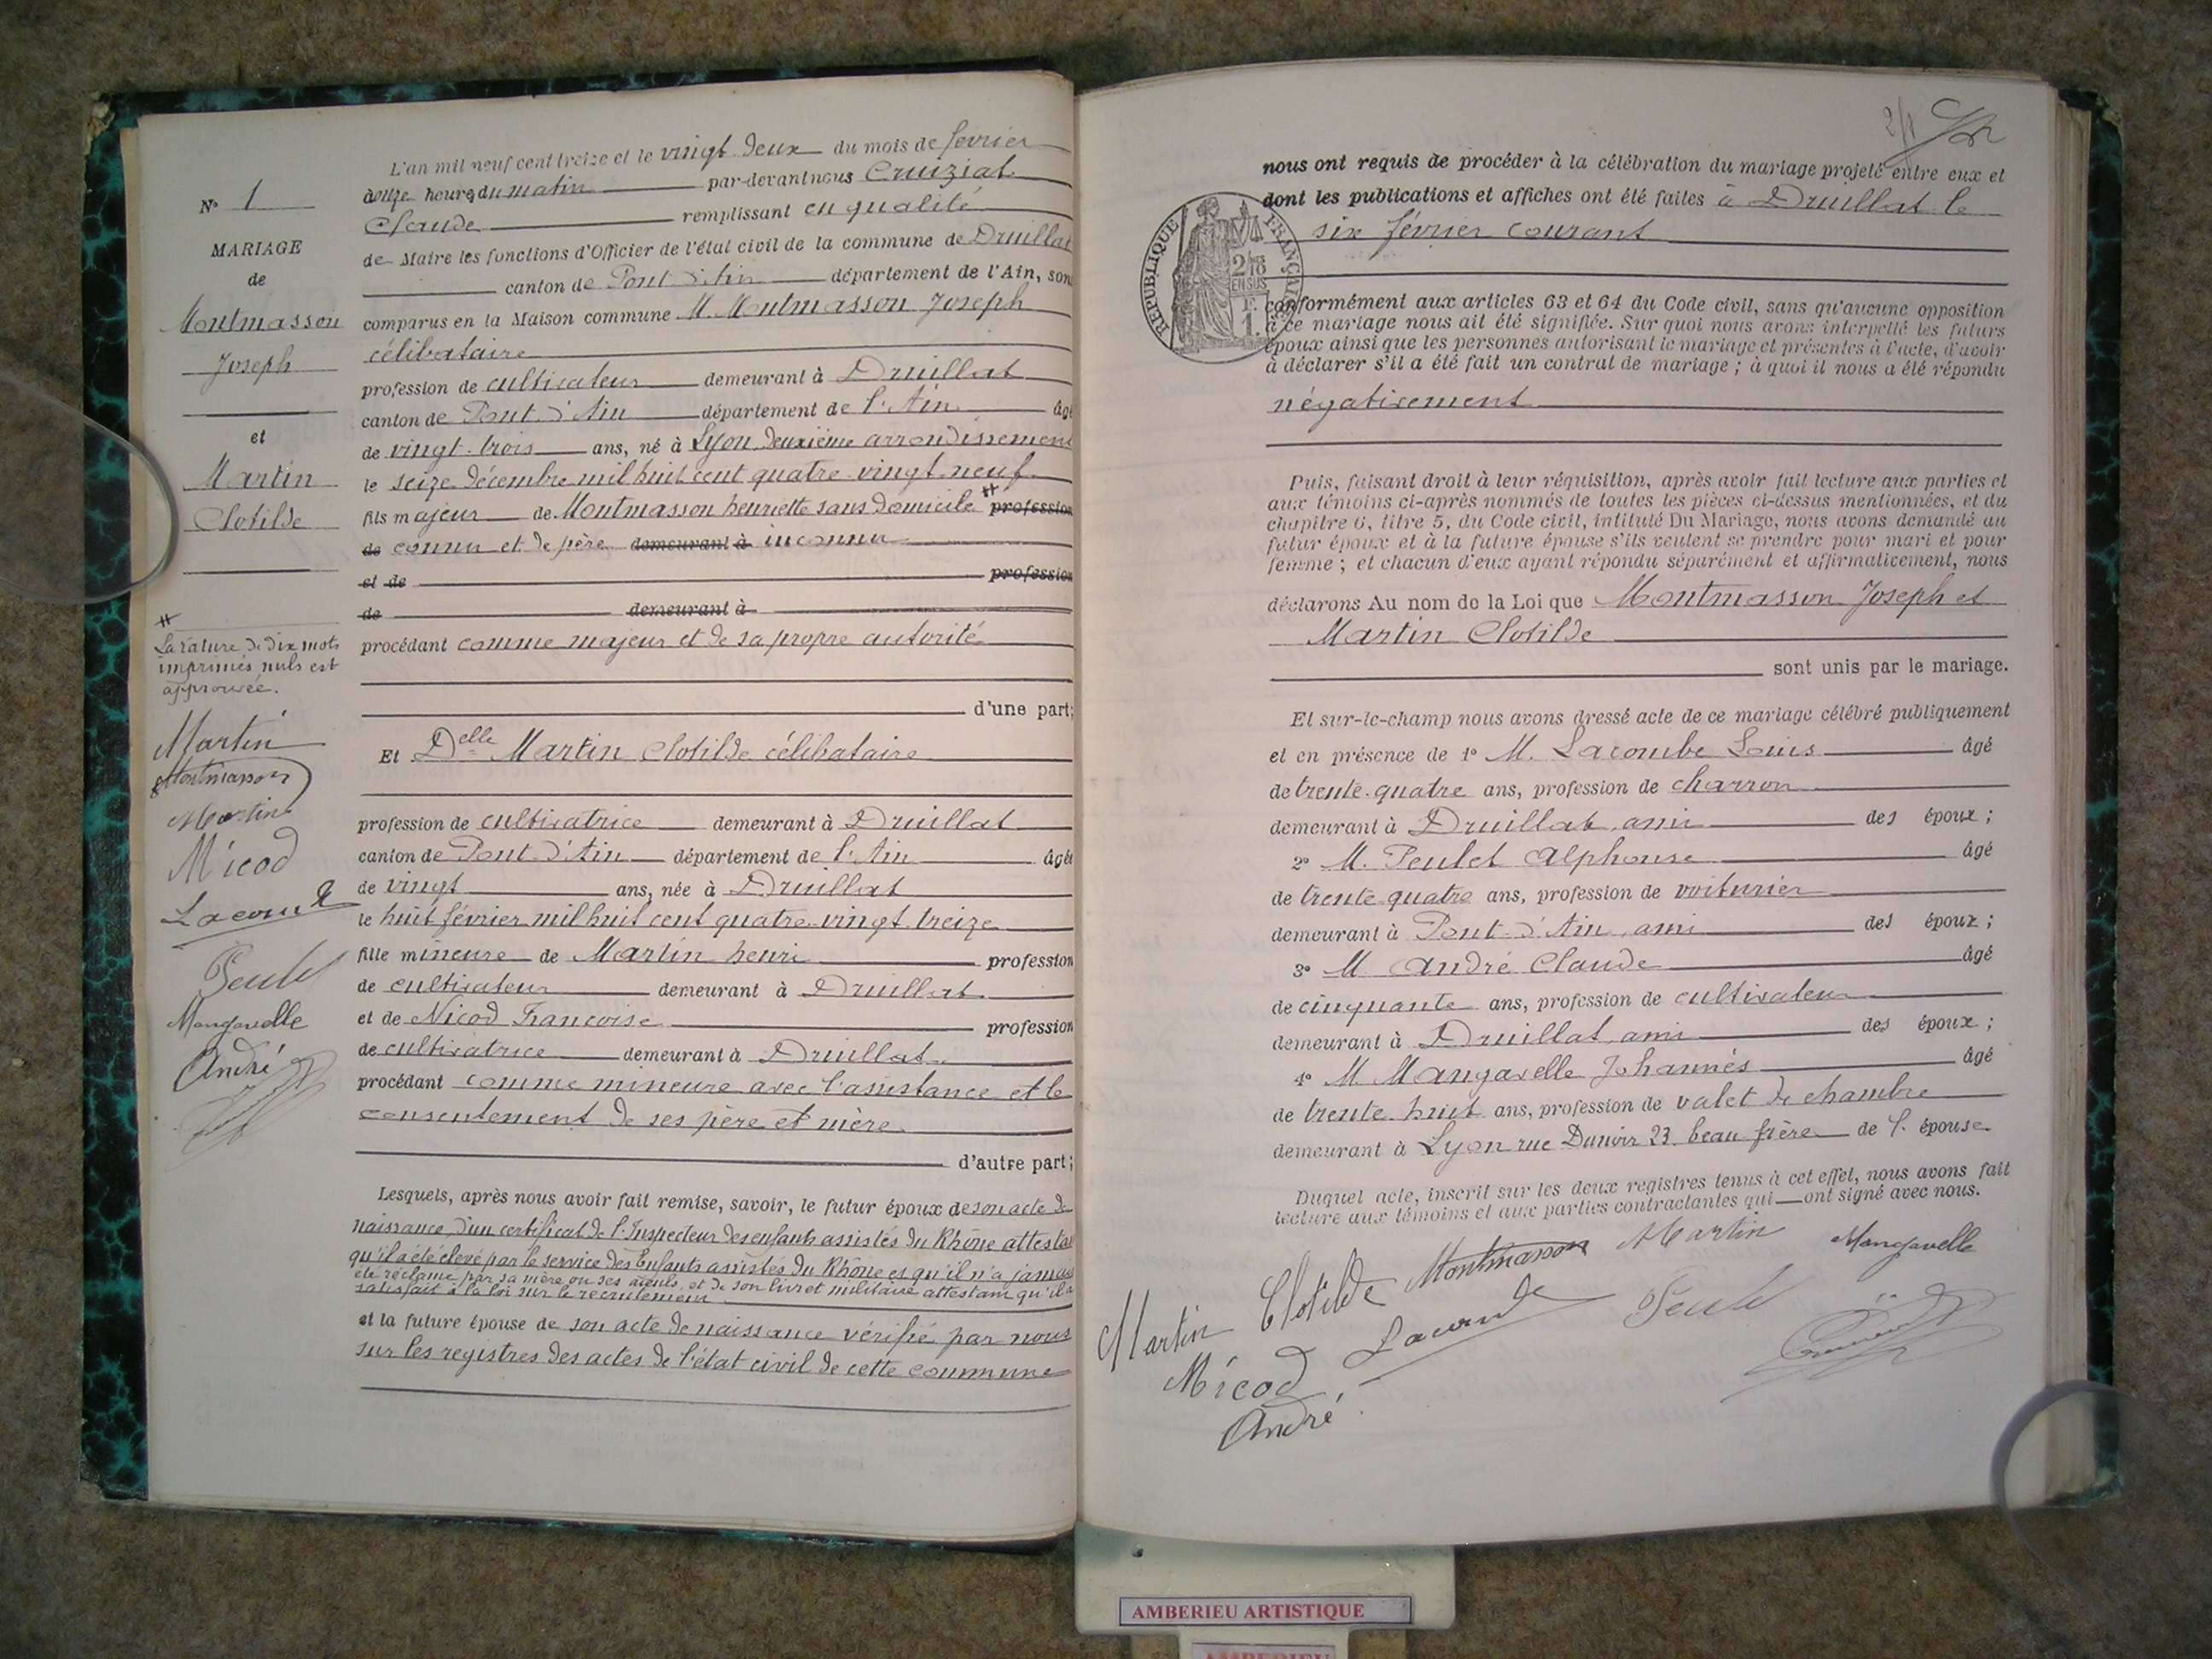 L'an mil neuf cent treize et le vingt deux du mois de février
à onze heures du matin par-devant nous Cruiziat
Claude remplissant en qualité
de Maire les fonctions d'Officier de l'état civil de la commune de Druillat
canton de Pont d'Ain département de l'Ain, son
comparus en la Maison commune M. Montmasson Joseph
célibataire
profession de cultivateur demeurant à Druillat
canton de Pont d'Ain département de l'Ain âgé
de vingt-trois ans, né à Lyon deuxième arrondissement
le seize décembre mil huit cent quatre-vingt-neuf
fils majeur de Montmasson henriette sans domicile # profession
de connu et de père demeurant à inconnu
et de profession
de demeurant à
procédant comme majeur et de sa propre autorité
d'une part;
Et Delle Martin Clotilde célibataire
profession de cultivatrice demeurant à Druillat
canton de Pont d'Ain département de l'Ain âgée
de vingt ans, née à Druillat
le huit février mil huit cent quatre-vingt treize
fille mineure de Martin henri profession
de cultivateur demeurant à Druillat
et de Nicod Françoise profession
de cultivatrice demeurant à Druillat
procédant comme mineure avec l'assistance et le
consentement de ses père et mère
d'autre part;
Lesquels, après nous avoir fait remise, savoir, le futur époux de son acte de
naissance, d'un certificat de l'Inspecteur des enfants assistés du Rhône attestant
qu'il a été élevé par le service des Enfants assistés du Rhône et qu'il n'a jamais
été réclamé par sa mère ou ses aïeuls et de son livret militaire attestant qu'il a
satisfait à la loi sur le recrutement
et la future épouse de son acte de naissance vérifié par nous
sur les registres des actes de l'état civil de cette commune
N° 1
MARIAGE
de
Montmasson
Joseph
et
Martin
Clotilde
#
La rature de dix mots
imprimés nuls est
approuvée.
Martin
Montmasson
Martin
Nicod
Lacombe
Peulet
Mangavelle
André
2/1
nous ont requis de procéder à la célébration du mariage projeté entre eux et
dont les publications et affiches ont été faites à Druillat le
six février courant
RÉPUBLIQUE FRANÇAISE
2/10 EN SUS
1 F.
conformément aux articles 63 et 64 du Code civil, sans qu'aucune opposition
à ce mariage nous ait été signifiée. Sur quoi nous avons interpellé les futurs
époux ainsi que les personnes autorisant le mariage et présentes à l'acte, d'avoir
à déclarer s'il a été fait un contrat de mariage ; à quoi il nous a été répondu
négativement
Puis, faisant droit à leur réquisition, après avoir fait lecture aux parties et
aux témoins ci-après nommés de toutes les pièces ci-dessus mentionnées, et du
chapitre 6, titre 5, du Code civil, intitulé Du Mariage, nous avons demandé au
futur époux et à la future épouse s'ils veulent se prendre pour mari et pour
femme ; et chacun d'eux ayant répondu séparément et affirmativement, nous
déclarons Au nom de la Loi que Montmasson Joseph et
Martin Clotilde
sont unis par le mariage.
Et sur-le-champ nous avons dressé acte de ce mariage célébré publiquement
et en présence de 1° M. Lacombe Louis âgé
de trente-quatre ans, profession de charron
demeurant à Druillat, ami des époux ;
2° M. Peulet Alphonse âgé
de trente quatre ans, profession de voiturier
demeurant à Pont d'Ain, ami des époux ;
3° M. André Claude âgé
de cinquante ans, profession de cultivateur
demeurant à Druillat, ami des époux ;
4° M. Mangavelle Johannès âgé
de trente huit ans, profession de valet de chambre
demeurant à Lyon rue Dunoir 23 beau frère de l'épouse
Duquel acte, inscrit sur les deux registres tenus à cet effet, nous avons fait
lecture aux témoins et aux parties contractantes qui ont signé avec nous.
Martin Clotilde Montmasson Martin Mangavelle
Nicod Lacombe Peulet
André
AMBERIEU ARTISTIQUE
AMBERIEU